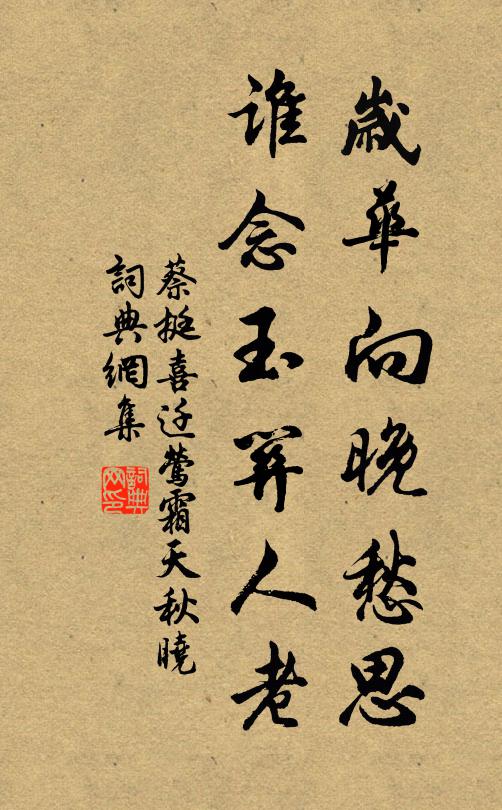 歲華向晚愁思
誰念玉關人老
蔡挺喜迁鶯霜天秋曉
詞典網集
詞典網印